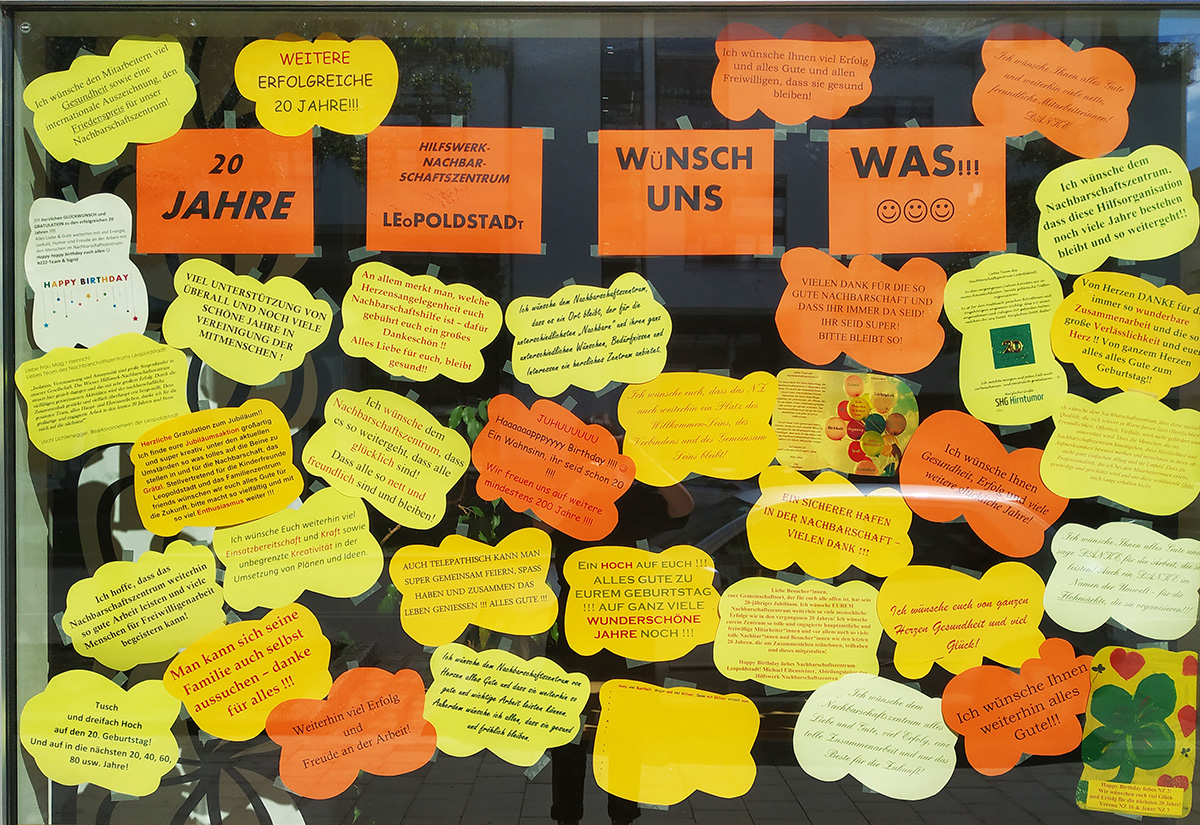 Ich wünsche den Mitarbeitern viel
Gesundheit sowie eine
internationale Auszeichnung, den
Friedenspreis für unser
Nachbarschaftszentrum!
WEITERE
ERFOLGREICHE
20 JAHRE!!!
Ich wünsche Ihnen viel Erfolg
und alles Gute und allen
Freiwilligen, dass sie gesund
bleiben!
Ich wünsche Ihnen alles Gute
und weiterhin viele nette,
freundliche Mitarbeiterinnen!
DANKE
20
JAHRE
HILFSWERK-
NACHBAR-
SCHAFTSZENTRUM
LEOPOLDSTADT
WÜNSCH
UNS
WAS!!!
Ich wünsche dem
Nachbarschaftszentrum,
dass diese Hilfsorganisation
noch viele Jahre bestehen
bleibt und so weitergeht!!
!!!! Herzlichen GLÜCKWUNSCH und
GRATULATION zu den erfolgreichen 20
Jahren !!!!
Alles Liebe & Gute weiterhin mit viel Energie,
Geduld, Humor und Freude an der Arbeit mit
den Menschen im Nachbarschaftszentrum!
Happy happy birthday euch allen ☺
NZ22-Team & Sigrid
HAPPY BIRTHDAY
VIEL UNTERSTÜTZUNG VON
ÜBERALL UND NOCH VIELE
SCHÖNE JAHRE IN
VEREINIGUNG DER
MITMENSCHEN !
An allem merkt man, welche
Herzensangelegenheit euch
Nachbarschaftshilfe ist – dafür
gebührt euch ein großes
Dankeschön !!
Alles Liebe für euch, bleibt
gesund!!
Ich wünsche dem Nachbarschaftszentrum,
dass es ein Ort bleibt, der für die
unterschiedlichsten „Nachbarn" und ihren ganz
unterschiedlichen Wünschen, Bedürfnissen und
Interessen ein herzliches Zentrum anbietet.
VIELEN DANK FÜR DIE SO
GUTE NACHBARSCHAFT UND
DASS IHR IMMER DA SEID!
IHR SEID SUPER!
BITTE BLEIBT SO!
20
SHG Hirntumor
Von Herzen DANKE für die
immer so wunderbare
Zusammenarbeit und die so
große Verlässlichkeit und
Herz !! Von ganzem Herzen
alles alles Gute zum
Geburtstag!!
Liebe Frau Mag.
Liebes Team des Nachbarschaftszentrums Leopoldstadt,
Uschi Lichtenegger, Bezirksvorsteherin der Leopoldstadt
Herzliche Gratulation zum Jubiläum!!
Ich finde eure Jubiläumsaktion großartig
und super kreativ, unter den aktuellen
Umständen so was tolles auf die Beine zu
stellen in und für die Nachbarschaft, das
Grätzl. Stellvertretend für die Kinderfreunde
Leopoldstadt und das Familienzentrum
friends wünschen wir euch alles Gute für
die Zukunft, bitte macht so vielfältig und mit
so viel Enthusiasmus weiter !!!
Ich wünsche dem
Nachbarschaftszentrum, dass
es so weitergeht, dass alle
glücklich sind!
Dass alle so nett und
freundlich sind und bleiben!
JUHUUUUUU
Haaaaaapppyyyy Birthday !!!! ☺
Ein Wahnsinn, ihr seid schon 20
!!!!
Wir freuen uns auf weitere
mindestens 200 Jahre !!!!
Ich wünsche euch, dass das NZ
auch weiterhin ein Platz des
Willkommen-Seins, des
Verbindens und des Gemeinsam-
Seins bleibt!
Ich wünsche Ihnen
Gesundheit, Erfolg und viele
weitere glückliche Jahre!
Ich wünsche Euch weiterhin viel
Einsatzbereitschaft und Kraft sowie
unbegrenzte Kreativität in der
Umsetzung von Plänen und Ideen.
EIN SICHERER HAFEN
IN DER NACHBARSCHAFT –
VIELEN DANK !!!
Ich hoffe, dass das
Nachbarschaftszentrum weiterhin
so gute Arbeit leisten und viele
Menschen für Freiwilligenarbeit
begeistern kann!
AUCH TELEPATHISCH KANN MAN
SUPER GEMEINSAM FEIERN, SPASS
HABEN UND ZUSAMMEN DAS
LEBEN GENIESSEN !!! ALLES GUTE !!!
EIN HOCH AUF EUCH !!!
ALLES GUTE ZU
EUREM GEBURTSTAG
!!! AUF GANZ VIELE
WUNDERSCHÖNE
JAHRE NOCH !!!
Liebe Besucher*innen,
euer Gemeinschaftsort, der für euch alle offen ist, hat sein
20-jähriges Jubiläum. Ich wünsche EUREM
Nachbarschaftszentrum weiterhin so viele menschliche
Erfolge wie in den vergangenen 20 Jahren! Ich wünsche
eurem Zentrum so tolle und engagierte hauptamtliche und
freiwillige Mitarbeiter*innen und vor allem auch so viele
tolle Nachbar*innen und Besucher*innen wie den letzten
20 Jahren, die am Zentrumsleben teilnehmen, teilhaben
und dieses mitgestalten!
Happy Birthday liebes Nachbarschaftszentrum
Leopoldstadt! Michael Eibensteiner, Abteilungsleiter
Hilfswerk Nachbarschaftszentren
Ich wünsche euch von ganzen
Herzen Gesundheit und viel
Glück!
Ich wünsche Ihnen alles Gute und
sage DANKE für die Arbeit, die
leistet. Auch ein DANKE im
Namen der Umwelt - für die
Flohmärkte, die sie organisieren!
Man kann sich seine
Familie auch selbst
aussuchen – danke
für alles !!!
Tusch
und dreifach Hoch
auf den 20. Geburtstag!
Und auf in die nächsten 20, 40, 60,
80 usw. Jahre!
Weiterhin viel Erfolg
und
Freude an der Arbeit!
Ich wünsche dem Nachbarschaftszentrum von
Herzen alles Gute und dass sie weiterhin so
gute und wichtige Arbeit leisten können.
Außerdem wünsche ich allen, dass sie gesund
und fröhlich bleiben.
Ich wünsche dem
Nachbarschaftszentrum alles
Liebe und Gute, viel Erfolg, eine
tolle Zusammenarbeit und nur das
Beste für die Zukunft!
Ich wünsche Ihnen
weiterhin alles
Gute!!!
Happy Birthday liebes NZ 2!
Wir wünschen euch viel Glück
und Erfolg für die nächsten 20 Jahre!
Verena NZ 16 & Jenny NZ 3